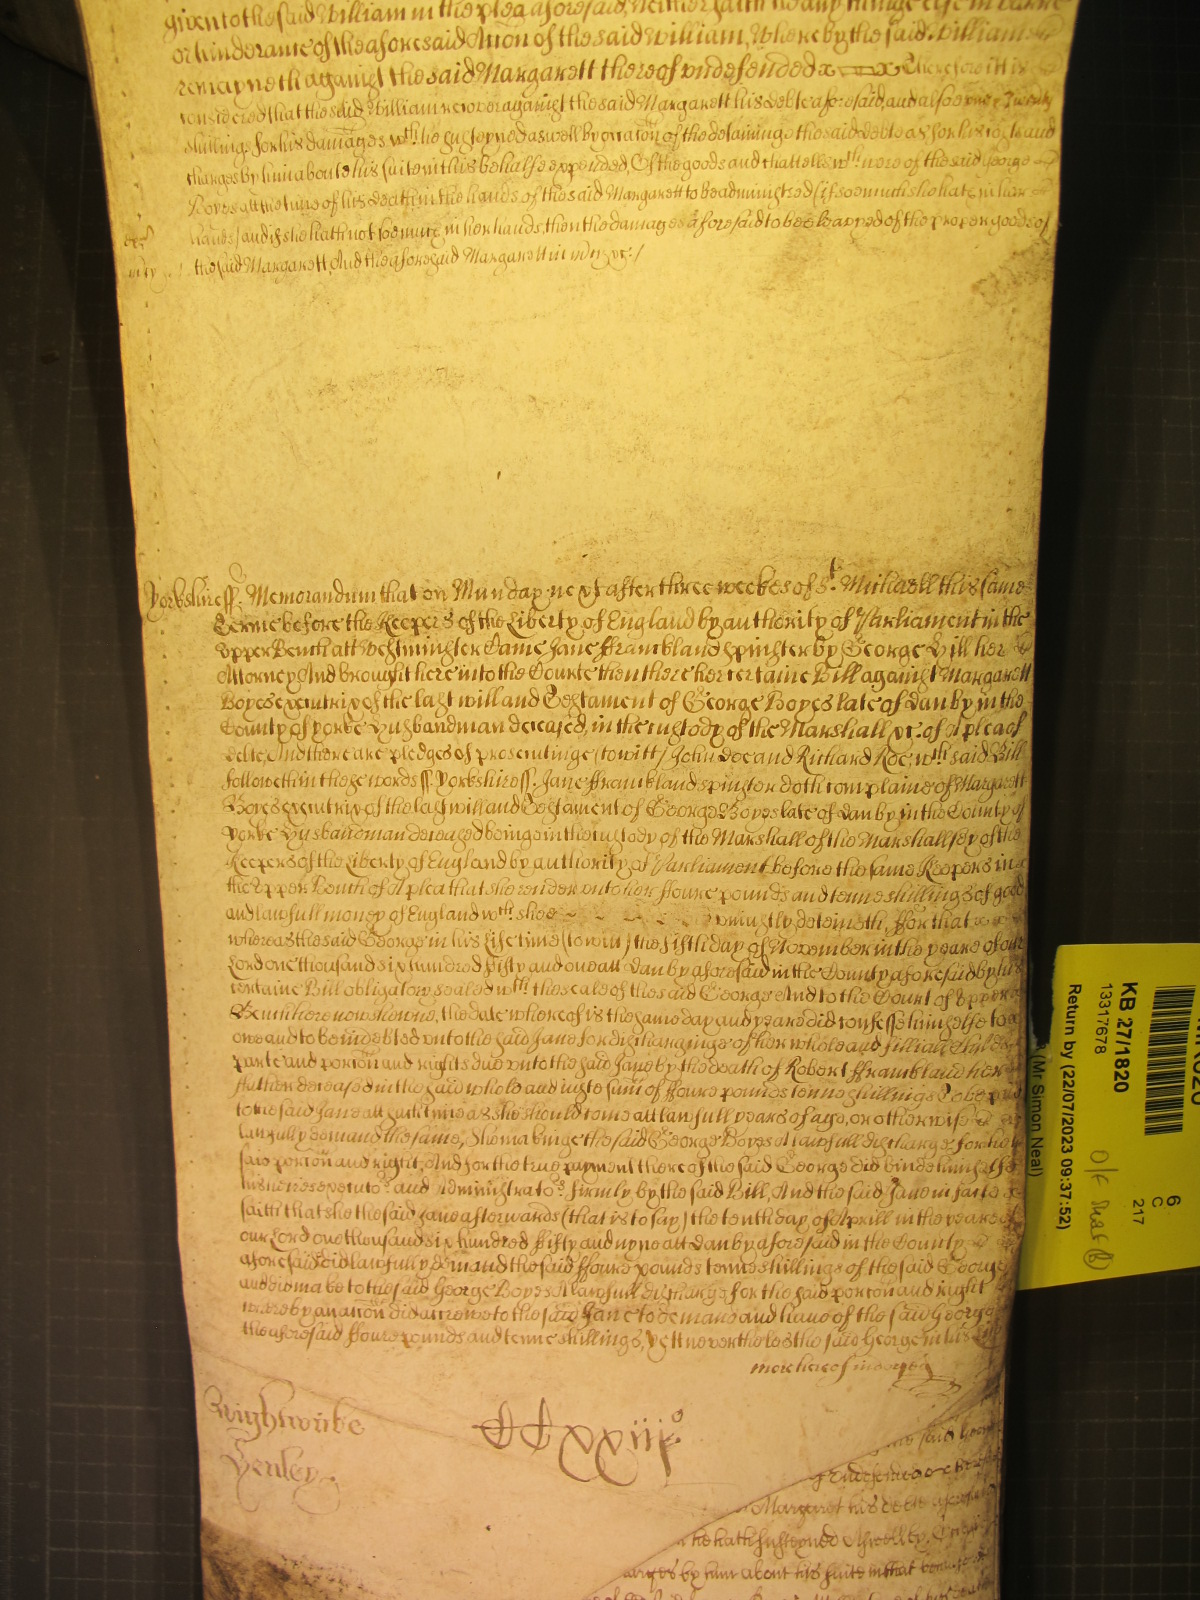 given to the said William in the plea aforesaid, Neither saith he any thinge else in barre
or hinderance of the aforesaid Accon of the said William, Whereby the said William
remayneth against the said Margarett thereof undefended Therefore itt is
considered that the said William recover against the said Margarett his debte aforesaid, and alsoe Twenty
shillings for his damages wch. he susteyned aswell by occacon of the detaininge the said debte as for his costs and
charges by him about his suite in this behalfe expended, Of the goods and chattells wch. were of the said George
Boyes att the tyme of his death in the hands of the said Margarett to be administred (if soe much she hath in her
hands) and if she hath not soe much in her hands, then the damages aforesaid to bee leavyed of the proper goods of
the said Margarett, And the aforesaid Margarett in mercy &c. /
Yorkshire ss. Memorandum that on Munday next after three weekes of St. Michaell this same
Terme before the Keepers of the Liberty of England by authority of Parliament in the
Upper Bench att Westminster Came Jane ffrankland Spinster by George Hill her
Attorney And brought here into the Courte then there her certaine Bill against Margarett
Boyes executrix of the last will and Testament of George Boyes late of Danby in the
County of yorke Husbandman deceased, in the custody of the Marshall &c. of A plea of
debte, And there are pledges of prosecutinge (to witt) John Doe and Richard Roe, wch. said Bill
followeth in these words ss. Yorkshire ss. Jane ffrankland spinster doth complaine of Margarett
Boyes executrix of the last will and Testament of George Boyes late of Danby in the County of
yorke Husbandman deceased beinge in the custody of the Marshall of the Marshallsey of the
Keepers of the Liberty of England by authority of Parliament before the same Keepers in
the Upper Bench of A plea that she render unto her ffoure pounds and tenne shillings of good
and lawfull money of England wch. shee uniustly deteineth, ffor that
whereas the said George in his life time (to witt) the fifth day of November in the yeare of our
Lord one thousand six hundred fifty and one att Danby aforesaid in the County aforesaid by his
certaine Bill obligatory sealed wth. the seale of the said George And to the Court of Upper
Bench here now shewne, the date whereof is the same day and yeare did confesse himselfe to
owe and to be indebted unto the said Jane for dischardginge of her whole and filliall Childes
parte and porcon and rights due unto the said Jane by the death of Robert ffrankland her
ffather deceased in the said whole and iuste sum of ffoure pounds tenne shillings To be paid
to the said Jane att such time as she should come att lawfull yeares of age, or otherwise
lawfully demand the same, Shee makinge the said George Boyes A lawfull discharge for her
said porcon and right, And for the true payment thereof the said George did binde himselfe
his heires executors. and Administrators. firmly by the said Bill, And the said Jane in facte
saith that she the said Jane afterwards (that is to say) the tenth day of Aprill in the yeare of
our Lord one thousand six hundred fifty and nyne att Danby aforesaid in the County
aforesaid did lawfully demand the said ffoure pounds tenne shillings of the said George
and did make to the said George Boyes A lawfull discharge for the said porcon and right
whereby an accon did accrewe to the said Jane to demand and have of the said George
the aforesaid ffoure pounds and tenne shillings, Yett neverthelesse the said George in his
more hereof
Wightwicke
Henley
CCxxiiijo
the said
Margaret his debt aforesaid
he hath susteyned Aswell by
charges by him about his suite in that
KB 27/1820
13317678
Return by (22/07/2023 09:37:52)
(Mr Simon Neal)
6
C
217